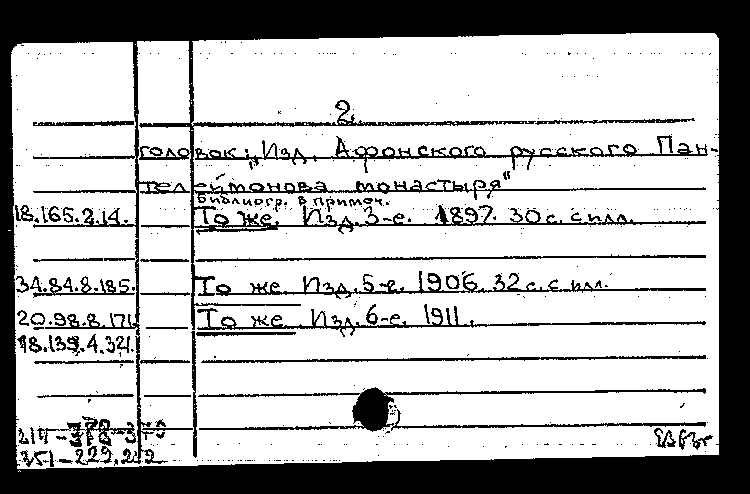 2.
головок: „Изд. Афонского русского Пан-
телеймонова монастыря"
Библиогр. в примеч.
18.165.2.14. То же. Изд. 3-е. 1897. 30 с. с илл.
34.84.8.185. То же. Изд. 5-е. 1906. 32 с. с илл.
20.98.8.171 То же. Изд. 6-е. 1911.
18.139.4.321.